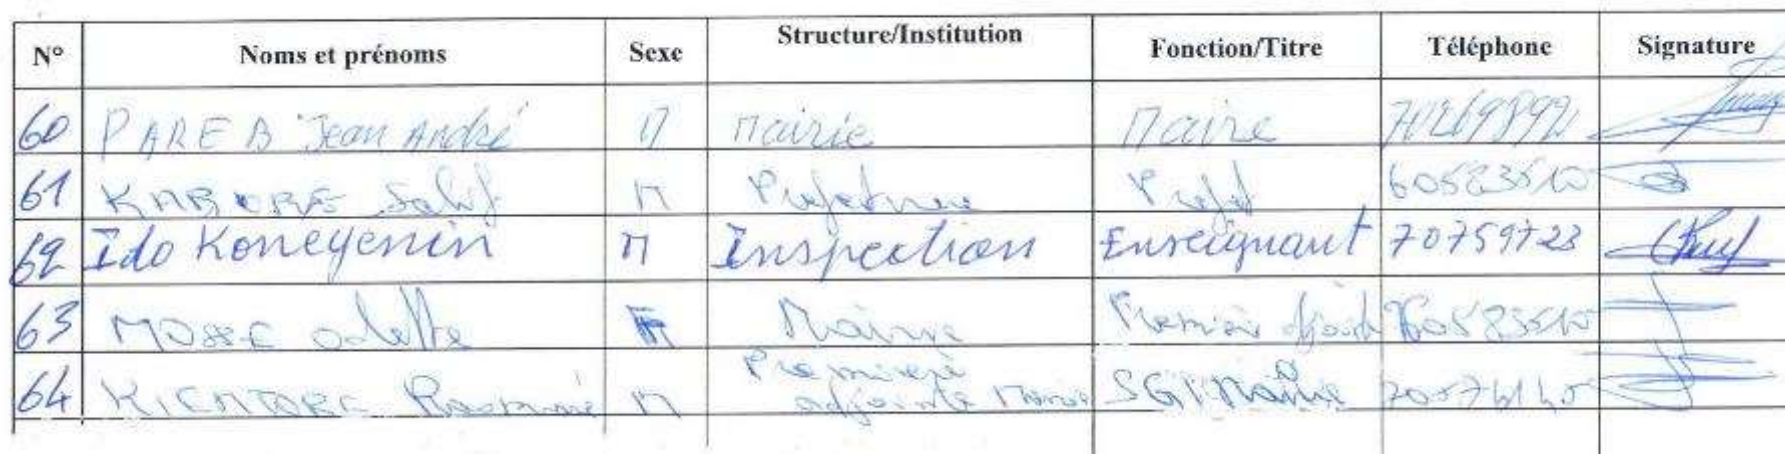 N° Noms et prénoms Sexe Structure/Institution Fonction/Titre Téléphone Signature
60 PARE B Jean André M Mairie Maire 70269892
61 KABORE Salif M Préfecture Préfet 60583510
62 Ido Koneyenin M Inspection Enseignant 70759723
63 MOSSE Odette F Mairie Premier adjoint
64 M Première adjointe Mairie SG/Mairie